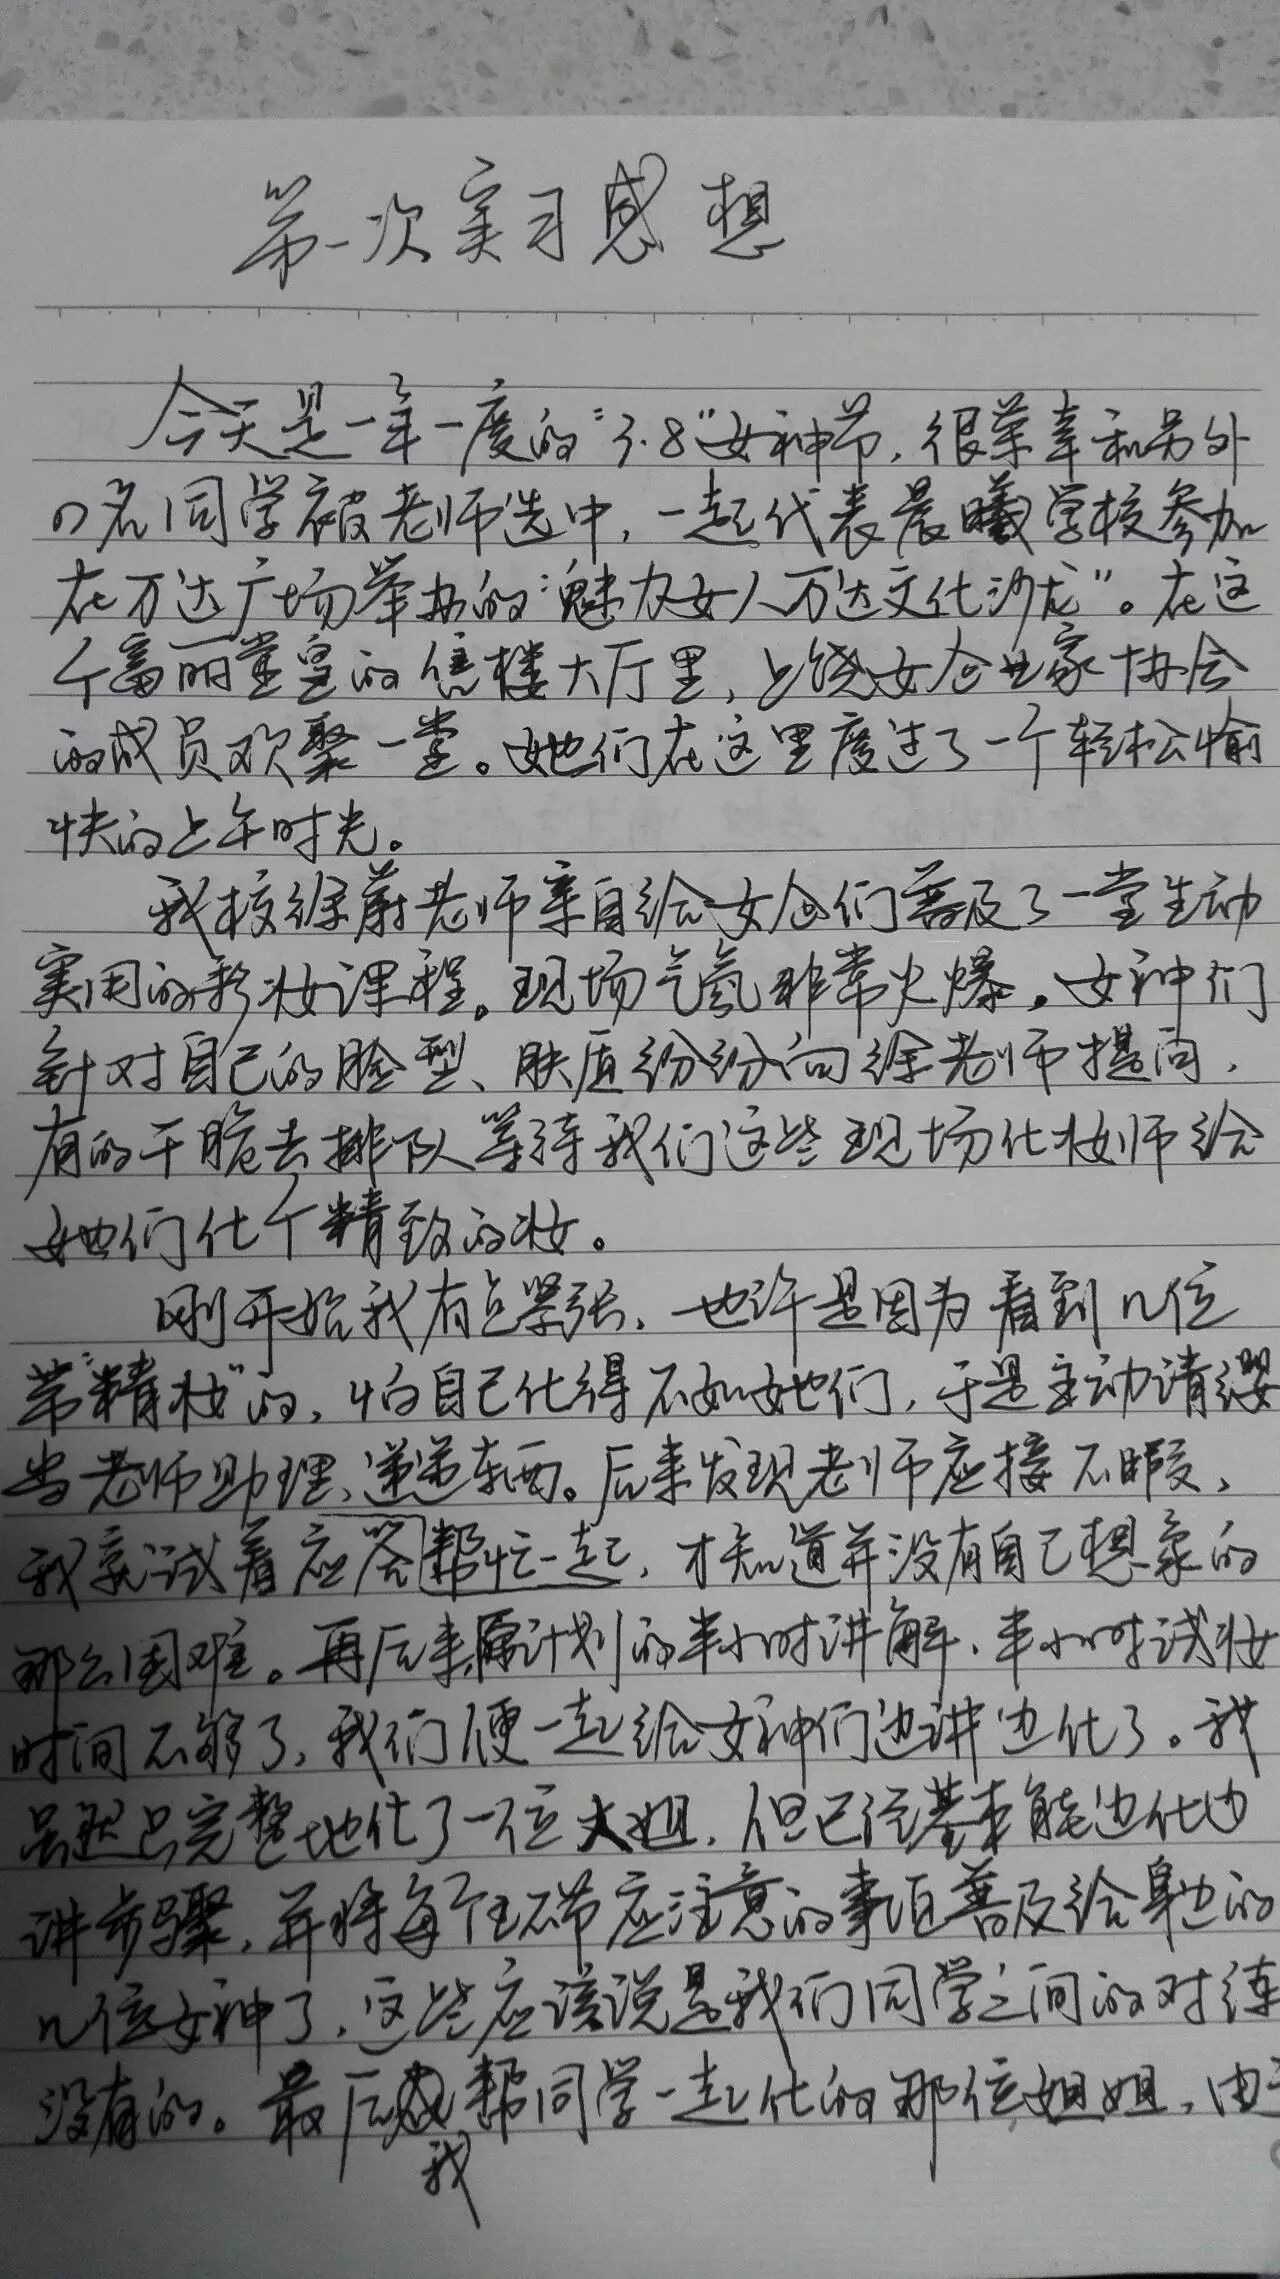 第一次实习感想
今天是一年一度的“3.8”女神节，很荣幸和另外
几名同学被老师选中，一起代表晨曦学校参加
在万达广场举办的“魅力女人万达文化沙龙”。在这
个富丽堂皇的售楼大厅里，上饶女企业家协会
的成员欢聚一堂。她们在这里度过了一个轻松愉
快的上午时光。
我校徐蔚老师亲自给女企们普及了一堂生动
实用的彩妆课程。现场气氛非常火爆。女神们
针对自己的脸型、肤质纷纷向徐老师提问，
有的干脆去排队等待我们这些现场化妆师给
她们化个精致的妆。
刚开始我有点紧张，也许是因为看到几位
带“精妆”的，怕自己化得不如她们，于是主动请缨
当老师助理、递递东西。后来发现老师应接不暇，
我就试着应答帮忙一起，才知道并没有自己想象的
那么困难。再后来原计划的半小时讲解、半小时试妆
时间不够了，我们便一起给女神们边讲边化了。我
虽然只完整地化了一位大姐，但已经基本能边化边
讲步骤，并将每个环节应注意的事项普及给身边的
几位女神了，这些应该说是我们同学之间的对练
没有的。最后我帮同学一起化的那位姐姐，由于